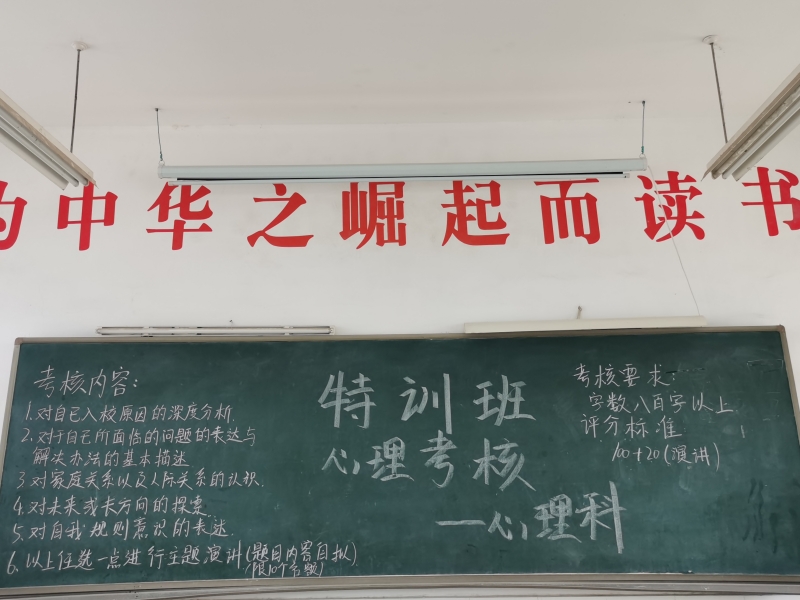 为中华之崛起而读书
考核内容:
1.对自己入校原因的深度分析.
2.对于自己所面临的问题的表达与
解决办法的基本描述
3.对家庭关系以及人际关系的认识.
4.对未来成长方向的探索.
5.对自我规则意识的表达.
6.以上任选一点进行主题演讲(题目内容自拟)
(限10个名额)
特训班
心理考核
—心理科
考核要求:
字数八百字以上
评分标准
100+20(演讲)